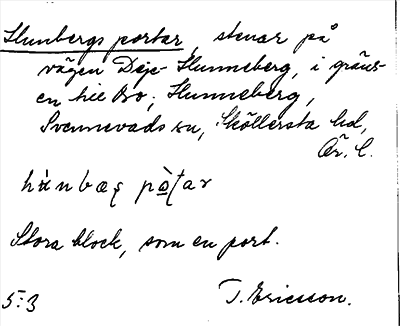 Hunbergs portar, stenar på
vägen Deje-Hunneberg, i gräns-
en till Bo, Hunneberg,
Svennevads sn, Sköllersta hd,
Ör. l.
hùnbæş pò̱ʈar
Stora block, som en port.
5:3 T. Ericsson.